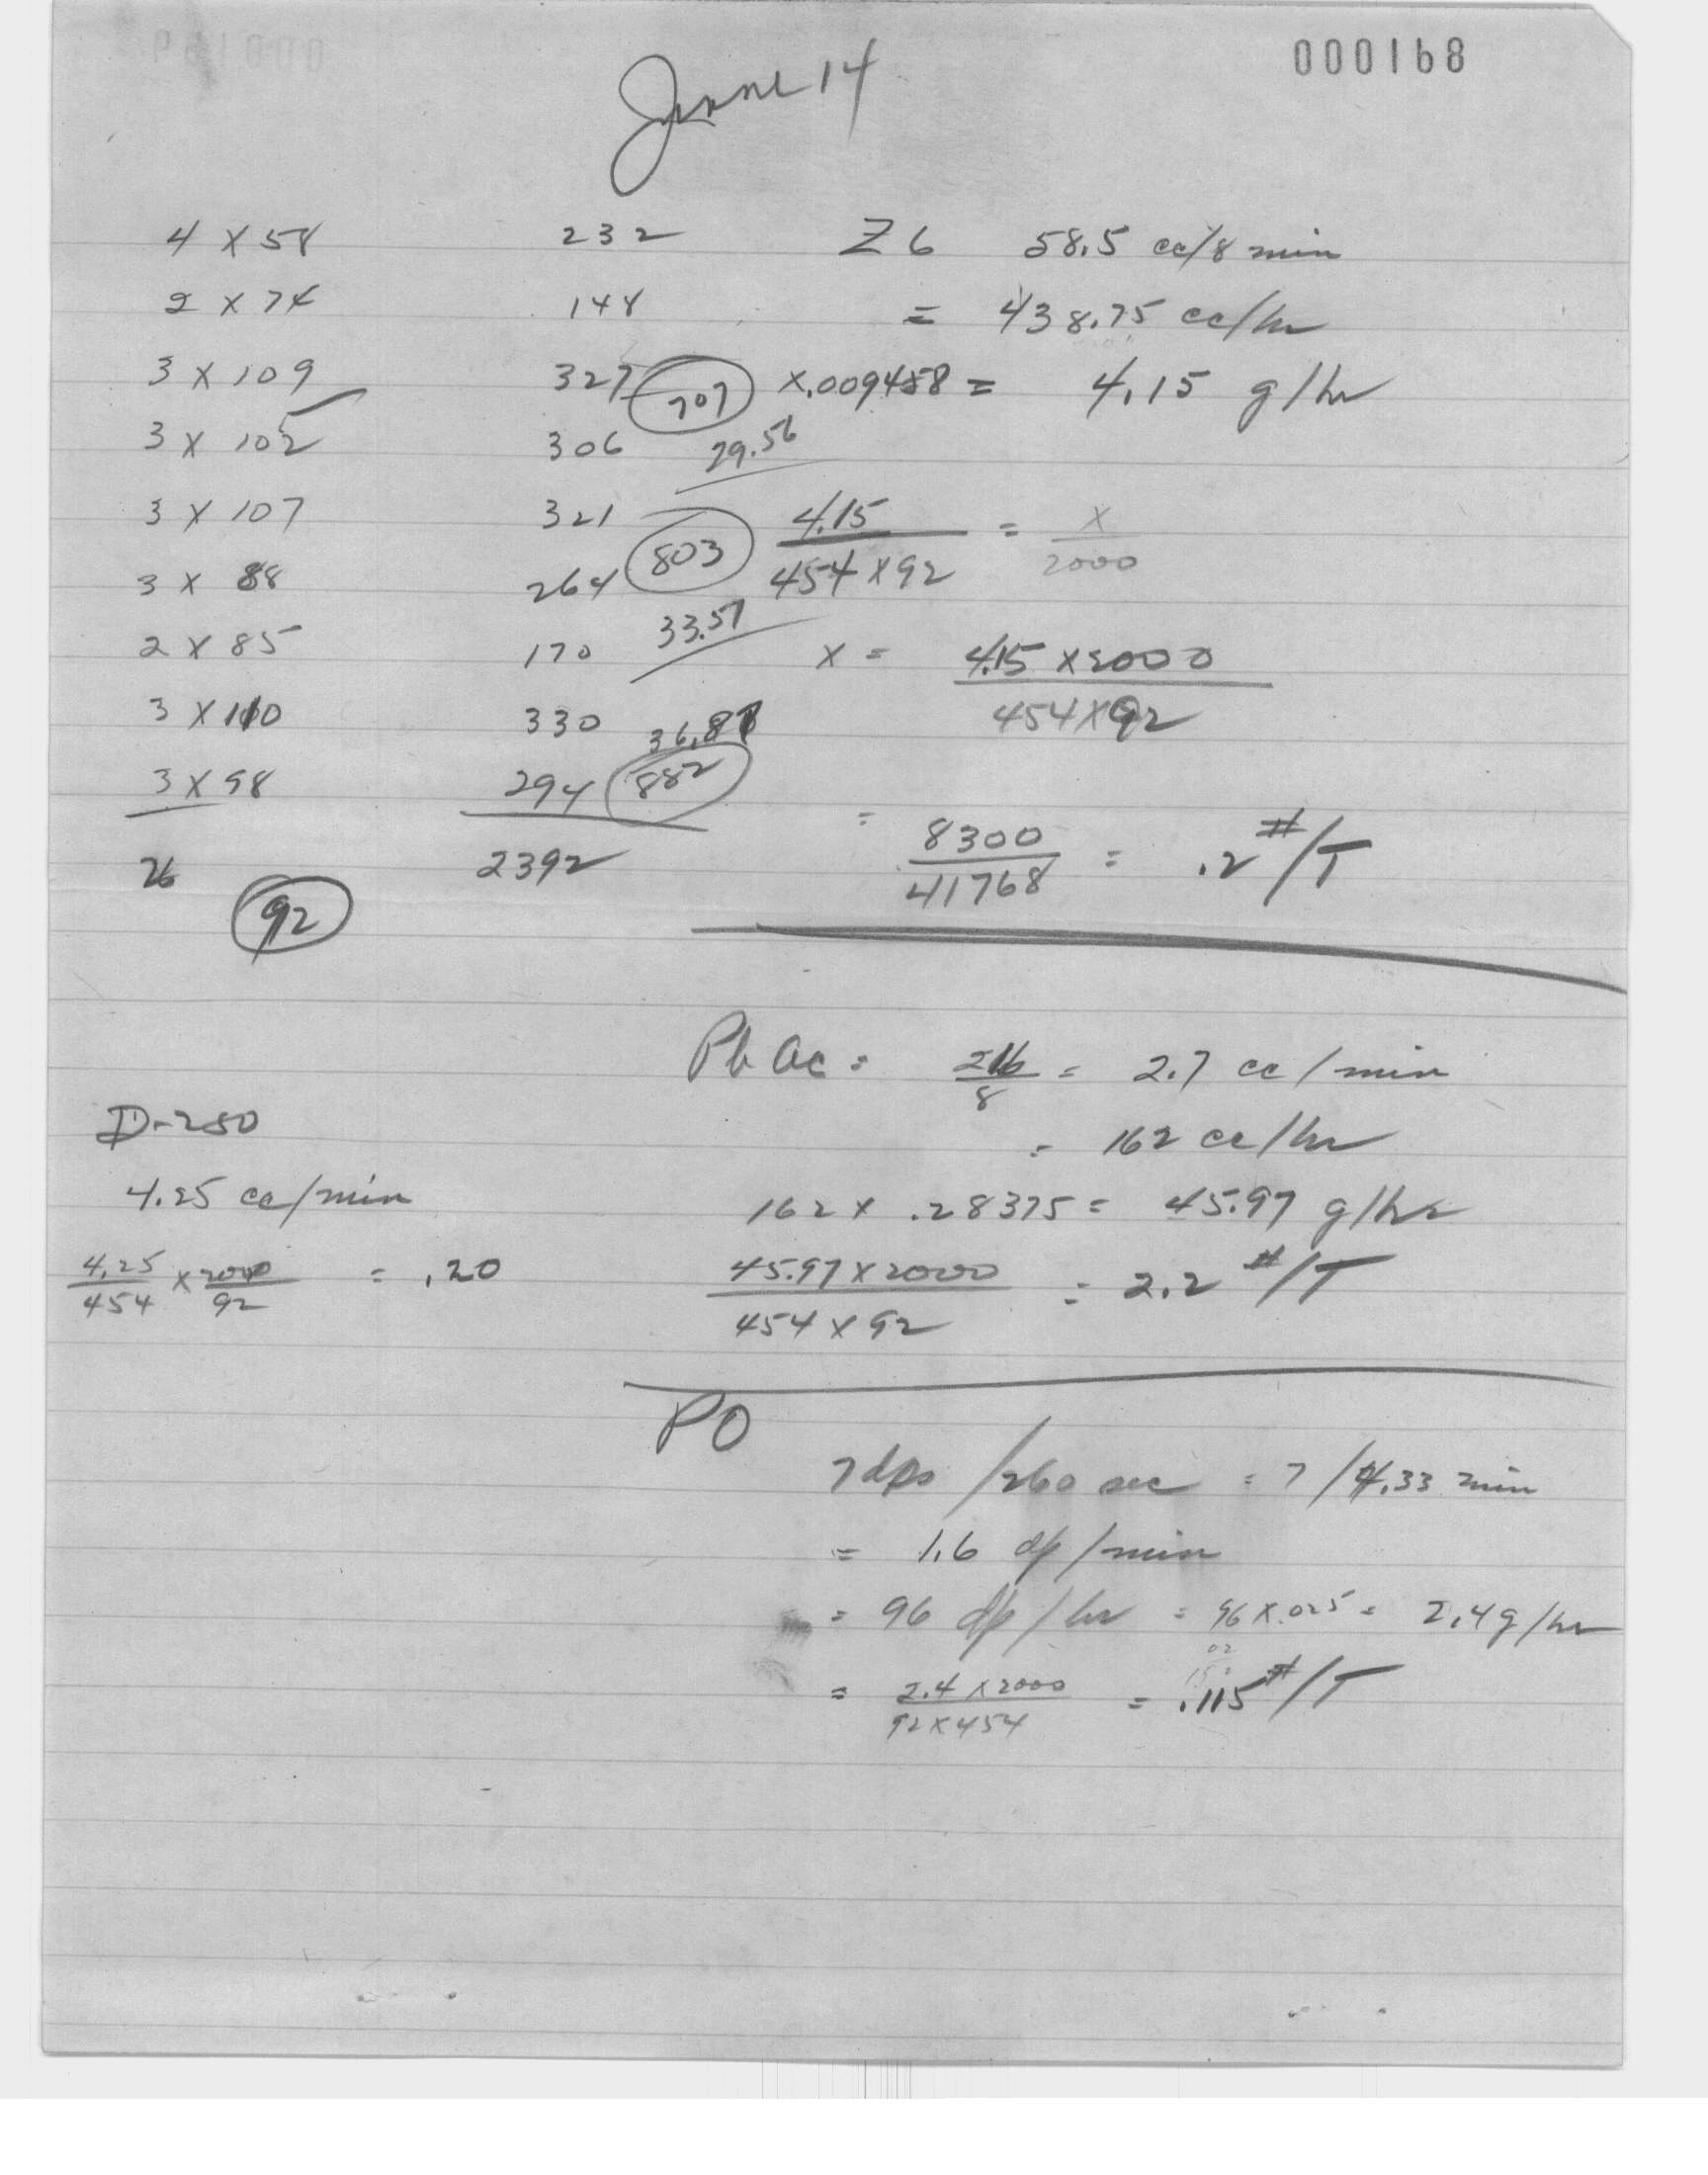 000168
June 14
4 X 58 232 Z6 58.5 cc/8 min
2 X 74 148 = 438.75 cc/hr
3 X 109 327 707 X.009458 = 4.15 g/hr
3 X 102 306 29.56
3 X 107 321 803 4.15 / 454 X 92 = X / 2000
3 X 88 264
2 X 85 170 33.57 X = 4.15 X 2000 / 454 X 92
3 X 110 330 36.87
3 X 98 294 882
26 92 2392 = 8300 / 41768 = .2 #/T
Pb Ac = 216 / 8 = 2.7 cc/min
D-250 = 162 cc/hr
4.25 cc/min 162 X .28375 = 45.97 g/hr
4.25 / 454 X 2000 / 92 = .20 45.97 X 2000 / 454 X 92 = 2.2 #/T
PO
7 dps /260 sec = 7 / 4.33 min
= 1.6 dp/min
= 96 dp/hr = 96 X .025 = 2.4 g/hr
= 2.4 X 2000 / 92 X 454 = .115 #/T